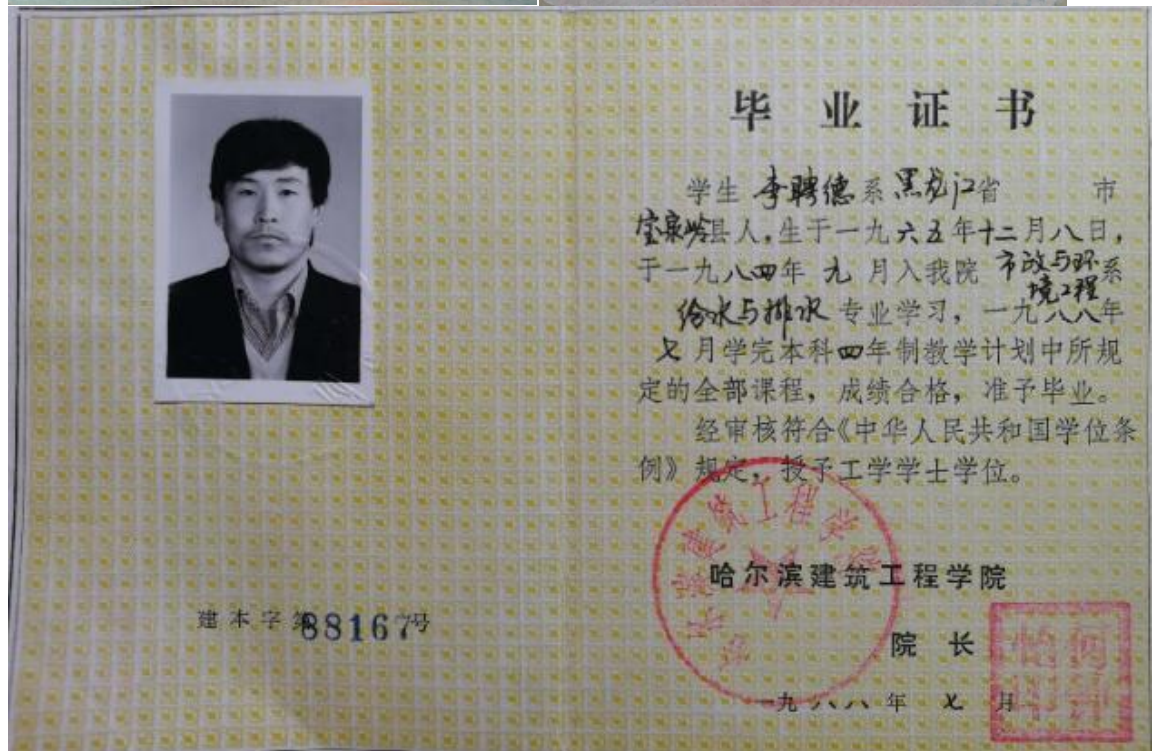 毕业证书
学生 李聘德 系 黑龙江省 市
宝泉岭县人,生于一九六五年十二月八日,
于一九八四年 九 月入我院 市政与环境工程系
给水与排水 专业学习,一九八八年
七月学完本科四年制教学计划中所规
定的全部课程,成绩合格,准予毕业。
经审核符合《中华人民共和国学位条
例》规定,授予工学学士学位。
哈尔滨建筑工程学院
院 长
一九八八年 七 月
建本字第88167号
哈尔滨建筑工程学院